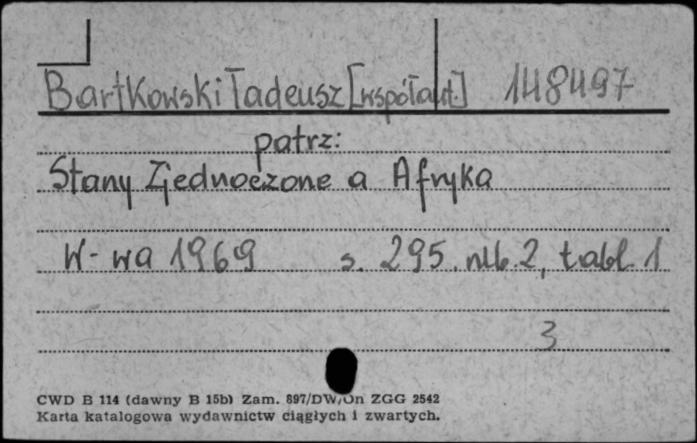 Bartkowski Tadeusz [współaut.] 148497
patrz:
Stany Zjednoczone a Afryka
W-wa 1969 s. 295. nlb. 2, tabl. 1
3
CWD B 114 (dawny B 15b) Zam. 897/DW/On ZGG 2542
Karta katalogowa wydawnictw ciągłych i zwartych.